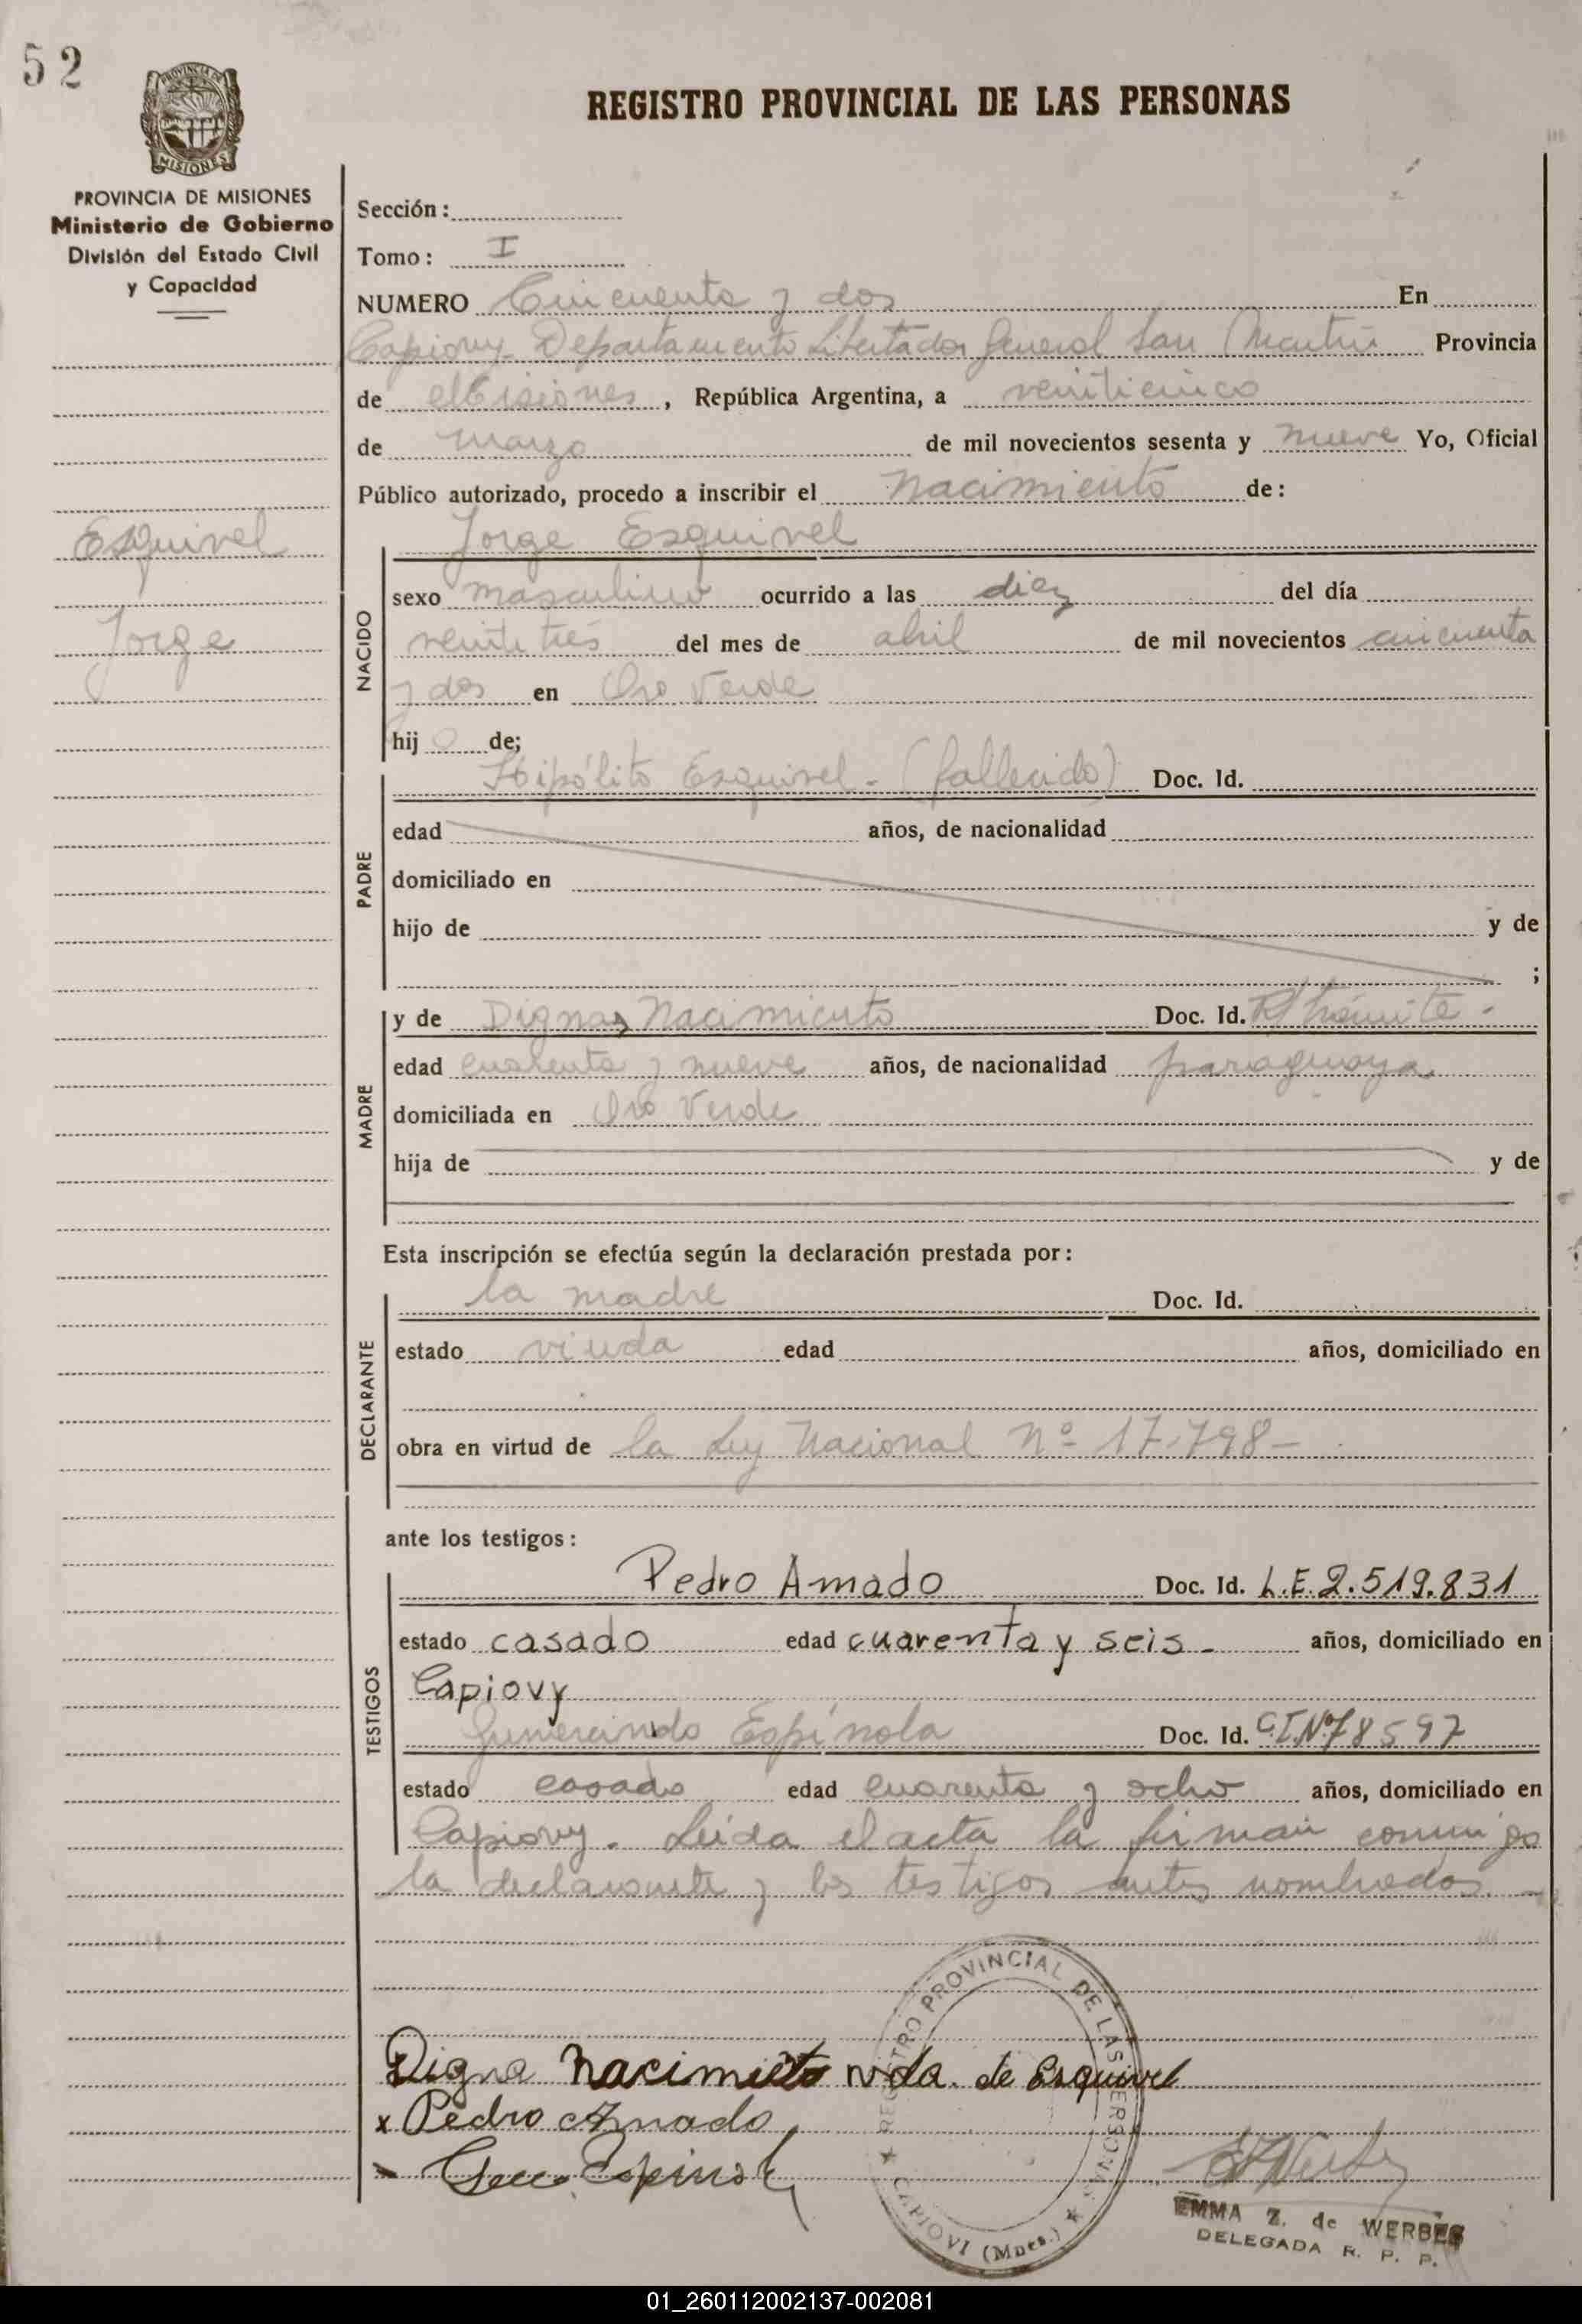 52
REGISTRO PROVINCIAL DE LAS PERSONAS
PROVINCIA DE MISIONES
MISIONES
PROVINCIA DE MISIONES
Ministerio de Gobierno
División del Estado Civil
y Capacidad
Sección:
Tomo: I
NUMERO Cincuenta y dos En
Capiovy - Departamento Libertador General San Martín Provincia
de Misiones, República Argentina, a veinticinco
de marzo de mil novecientos sesenta y nueve Yo, Oficial
Público autorizado, procedo a inscribir el nacimiento de:
Esquivel
Jorge
NACIDO
Jorge Esquivel
sexo masculino ocurrido a las diez del día
veintitrés del mes de abril de mil novecientos cincuenta
y dos en Oro Verde
hijo de;
PADRE
Hipólito Esquivel - (fallecido) Doc. Id.
edad años, de nacionalidad
domiciliado en
hijo de y de
;
MADRE
y de Digna Nacimiento Doc. Id. trámite -
edad cuarenta y nueve años, de nacionalidad paraguaya
domiciliada en Oro Verde
hija de y de
Esta inscripción se efectúa según la declaración prestada por:
DECLARANTE
la madre Doc. Id.
estado viuda edad años, domiciliado en
obra en virtud de la Ley Nacional Nº 17.798 -
ante los testigos:
TESTIGOS
Pedro Amado Doc. Id. L.E. 2.519.831
estado casado edad cuarenta y seis - años, domiciliado en
Capiovy
Gumercindo Espínola Doc. Id. C.I.Nº 78597
estado casado edad cuarenta y ocho años, domiciliado en
Capiovy. Leída el acta la firman conmigo
la declarante y los testigos antes nombrados. -
Digna Nacimieto vda. de Esquivel
x Pedro Amado
Espinola
REGISTRO PROVINCIAL DE LAS PERSONAS
CAPIOVI (Mnes.)
EMMA Z. de WERBES
DELEGADA R. P. P.
01_260112002137-002081